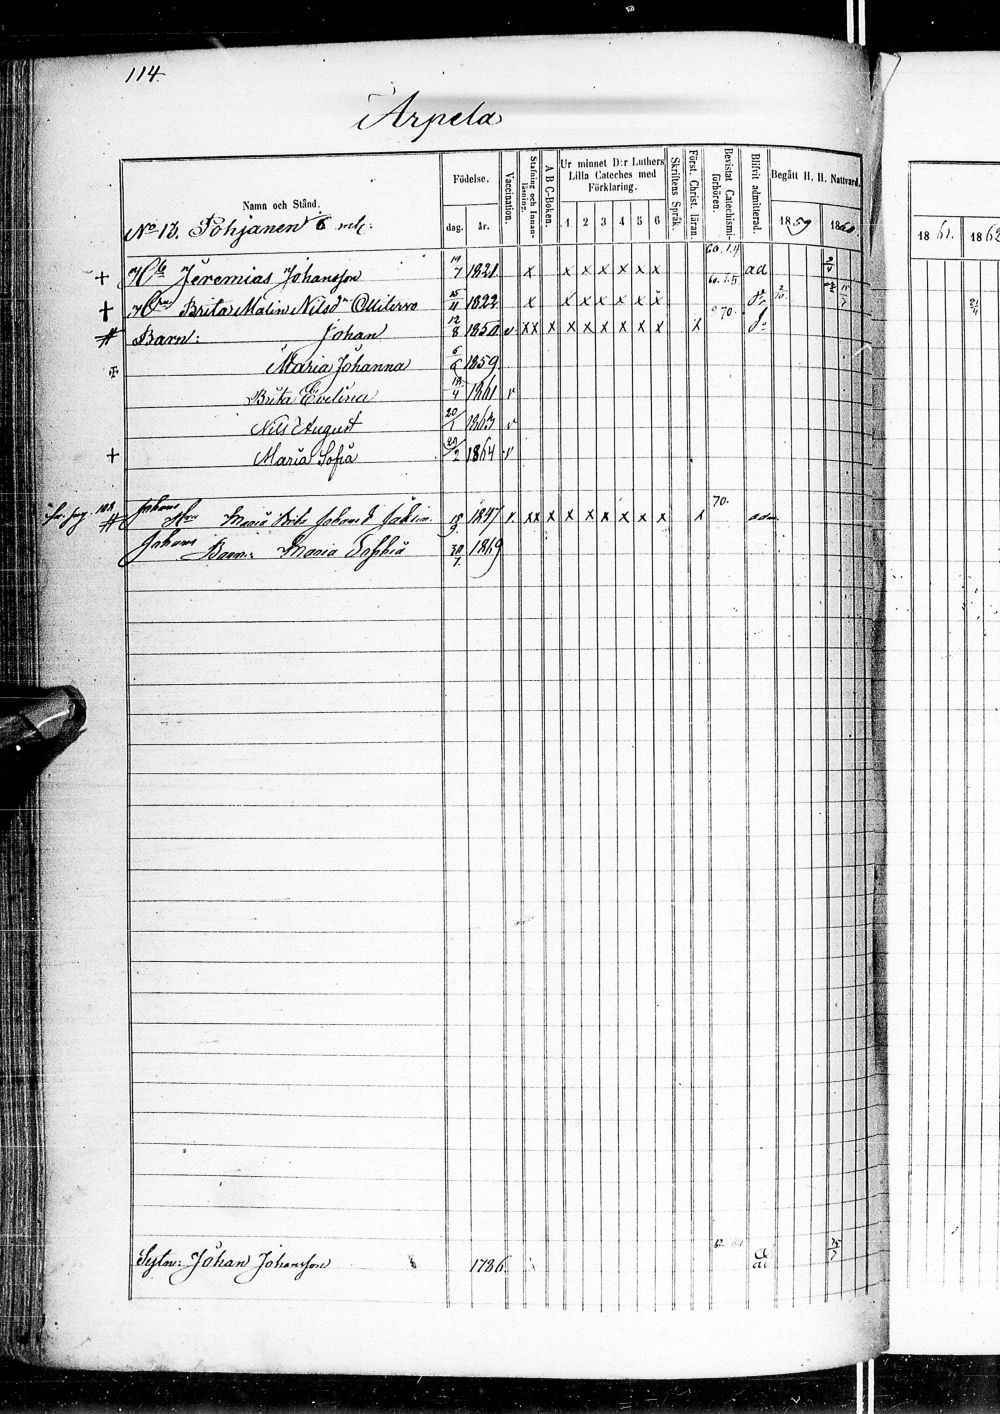 114.
Arpela
Namn och Stånd.
Födelse.
dag. år.
Vaccination.
Stafning och Innanläsning.
A B C-Boken.
Ur minnet D:r Luthers Lilla Cateches med Förklaring.
1 2 3 4 5 6
Skriftens Språk.
Först. Christ. läran.
Bevistat Catechismiförhören.
Blifvit admitterad.
Begått H. H. Nattvard.
1859 1860.
1861. 1862
No 13. Pohjanen 6 mtl.
+ Jeremias Johansson 19/7 1821 x x x x x x x ad
+ Brita Malin Nilsdr 15/11 1822 x x x x x x x do
# Barn: Johan 12/8 1850 v xx x x x x x x x x 70. do
Maria Johanna 6/6 1859
Brita Evelina 18/4 1861 v
Nils August 20/1 1863 v
+ Maria Sofia 29/2 1864 v
102 # Johans Hru Maria Brita Johansd 18/9 1847 v. xx x x x x x x x x 70. adm.
Johans Barn: Maria Sophia 30/7 1869
Sytn: Johan Johansson 1786 25/7